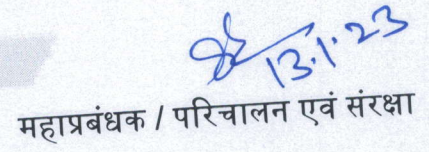 13.1.23
महाप्रबंधक / परिचालन एवं संरक्षा